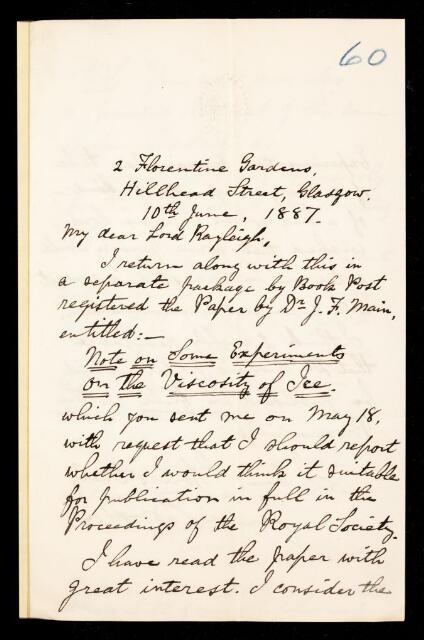 60
2 Florentine Gardens,
Hillhead Street, Glasgow.
10th June, 1887.
My dear Lord Rayleigh,
I return along with this in
a separate package by Book Post
registered the Paper by Dr J. F. Main,
entitled:—
Note on Some Experiments
on the Viscosity of Ice.
which you sent me on May 18,
with request that I should report
whether I would think it suitable
for publication in full in the
Proceedings of the Royal Society.
I have read the paper with
great interest. I consider the